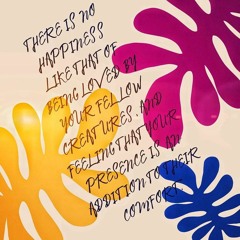 THERE IS NO
HAPPINESS
LIKE THAT OF
BEING LOVED BY
YOUR FELLOW
CREATURES, AND
FEELING THAT YOUR
PRESENCE IS AN
ADDITION TO THEIR
COMFORT